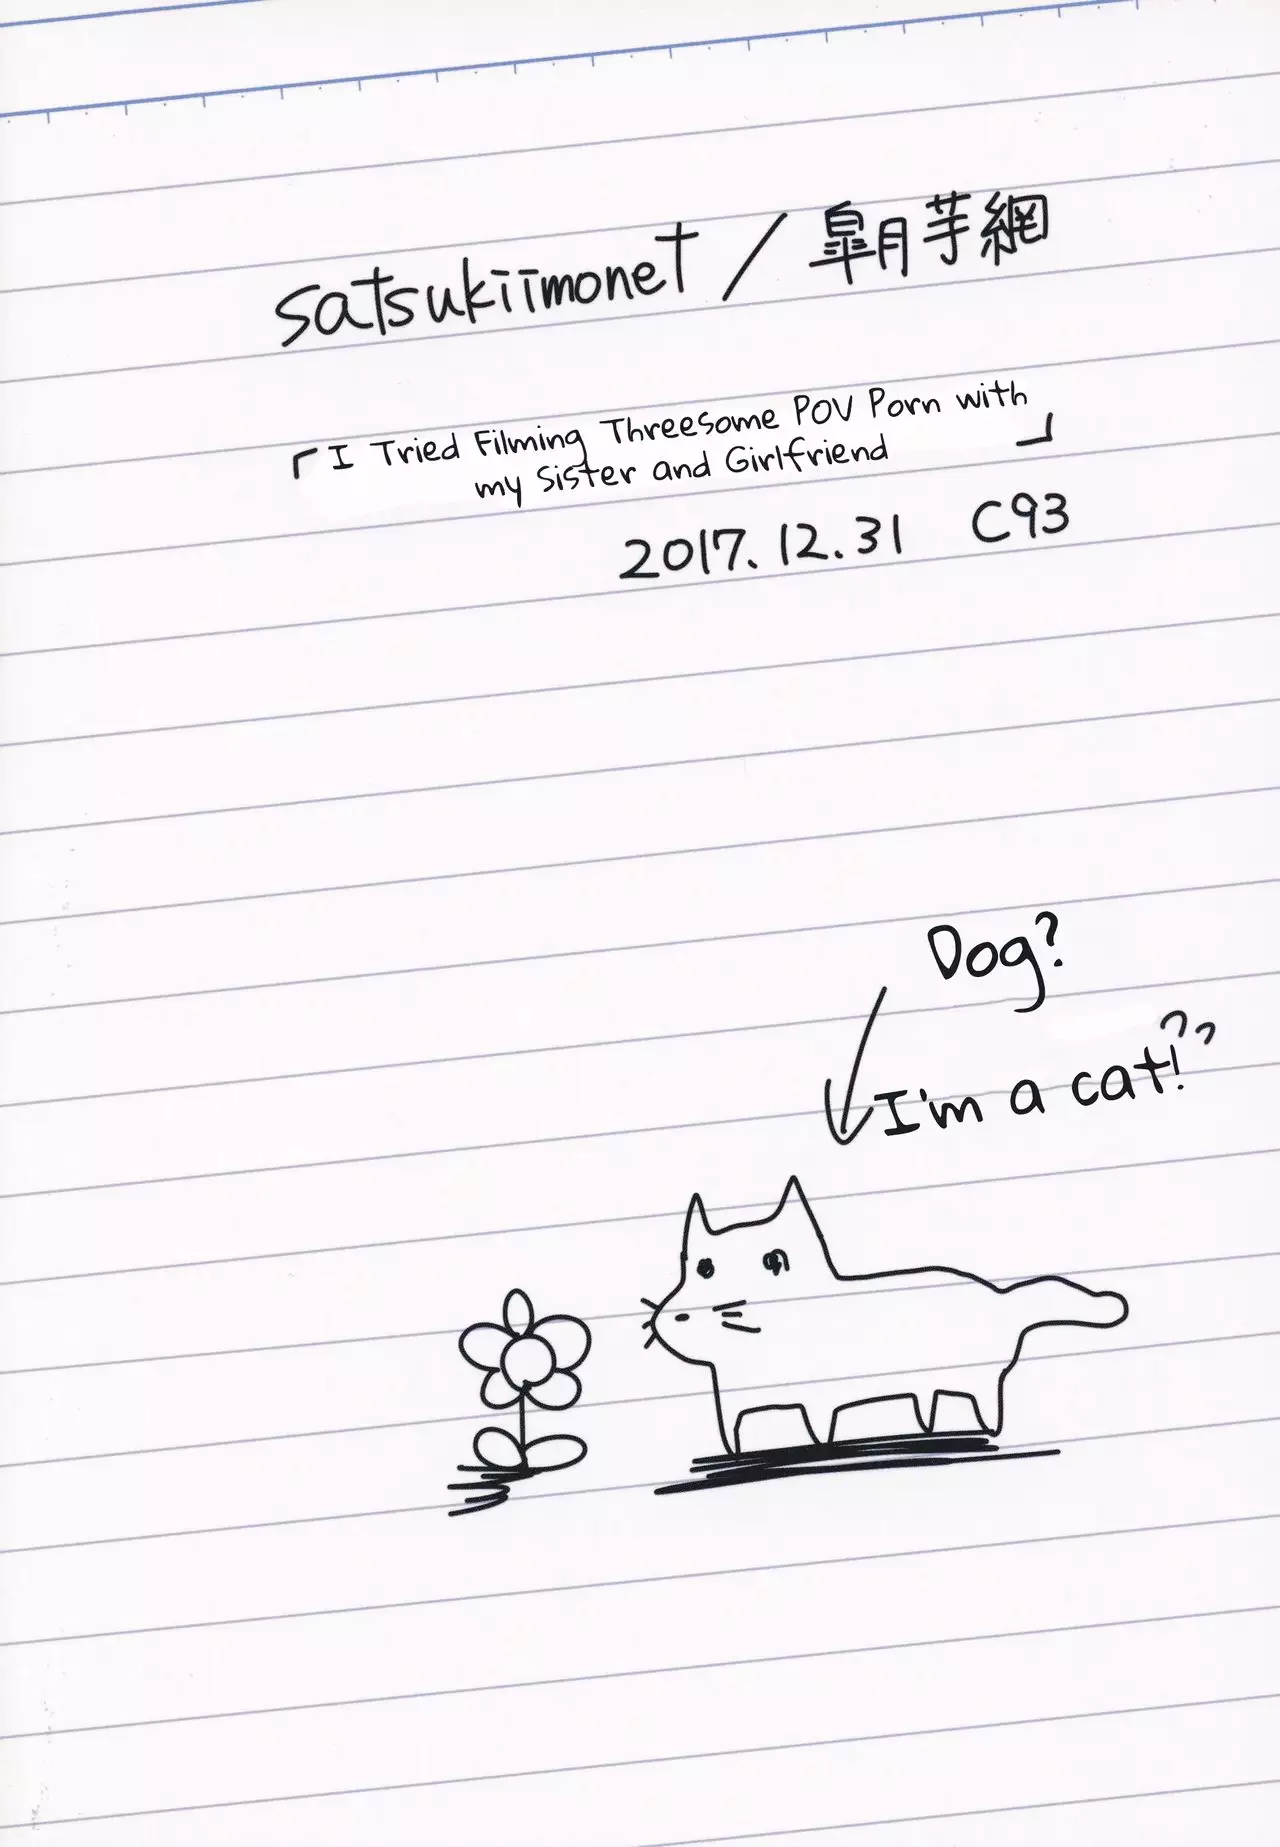 satsukiimonet／皐月芋網
「I Tried Filming Threesome POV Porn with
my Sister and Girlfriend」
2017.12.31 C93
Dog?
I'm a cat!??